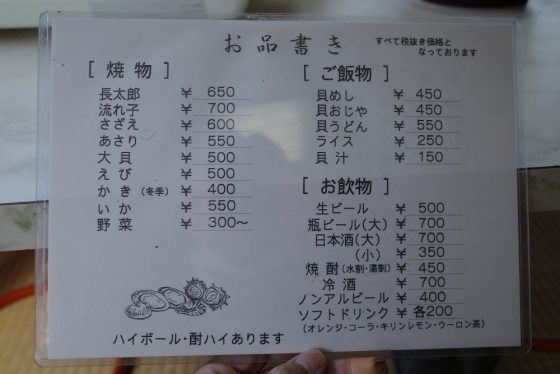 お品書き
すべて税抜き価格と
なっております
[ 焼物 ]
長太郎 ¥ 650
流れ子 ¥ 700
さざえ ¥ 600
あさり ¥ 550
大貝 ¥ 500
えび ¥ 500
かき (冬季) ¥ 400
いか ¥ 550
野菜 ¥ 300~
ハイボール・酎ハイあります
[ ご飯物 ]
貝めし ¥ 450
貝おじや ¥ 450
貝うどん ¥ 550
ライス ¥ 250
貝汁 ¥ 150
[ お飲物 ]
生ビール ¥ 500
瓶ビール(大) ¥ 700
日本酒(大) ¥ 700
(小) ¥ 350
焼酎(水割・湯割) ¥ 450
冷酒 ¥ 700
ノンアルビール ¥ 400
ソフトドリンク ¥ 各200
(オレンジ・コーラ・キリンレモン・ウーロン茶)